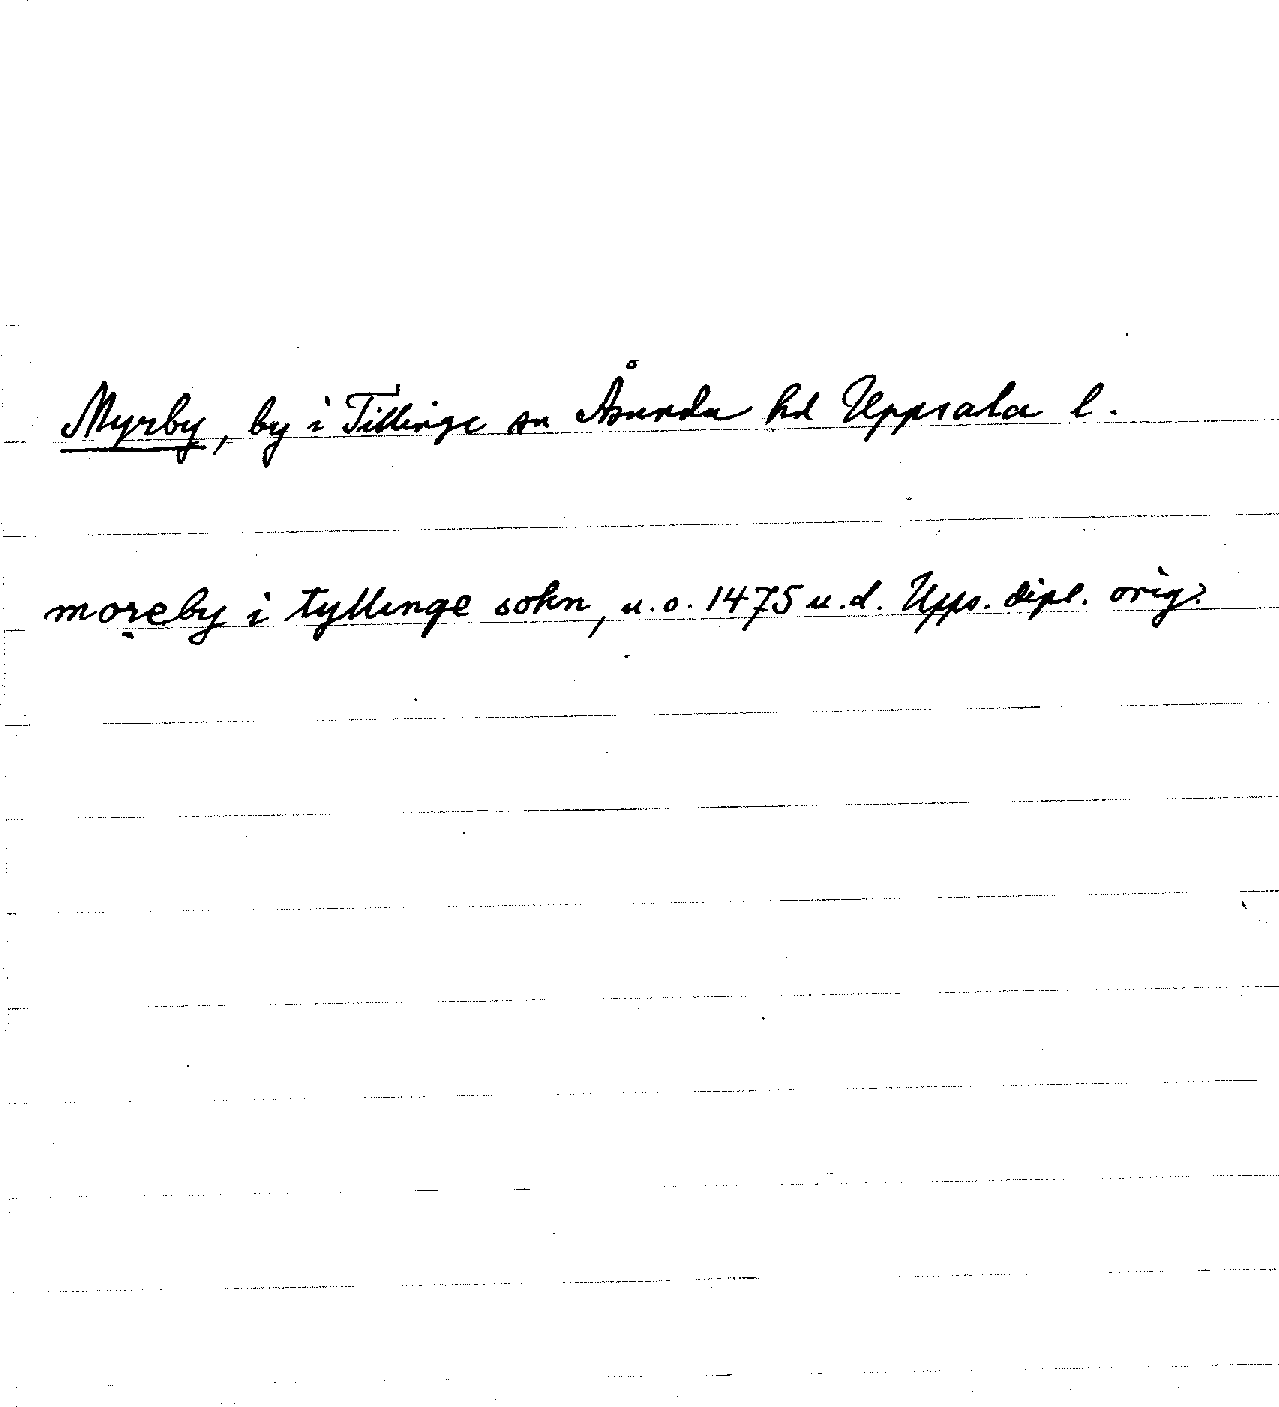 Myrby, by i Tillinge sn Åsunda hd Uppsala l.
moreby i tyllinge sokn, u.o. 1475 u.d. Upps. dipl. orig.